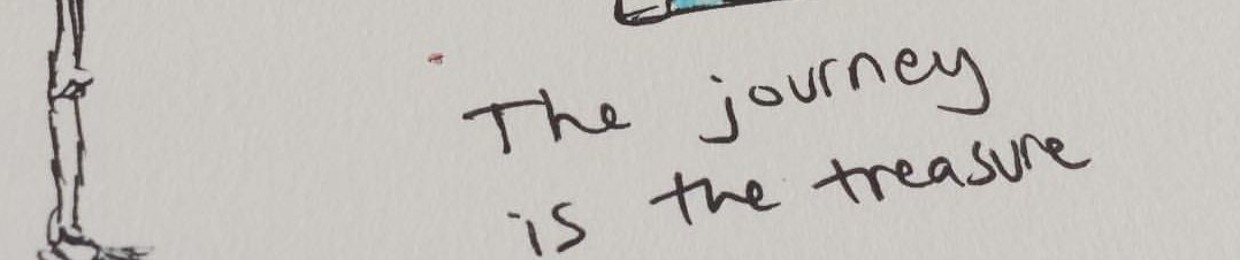 The journey
is the treasure